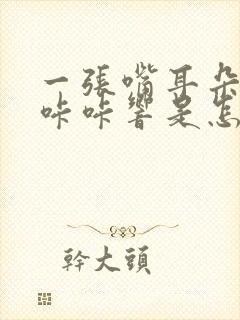 一張嘴耳朵
咔咔響是怎
幹大頭